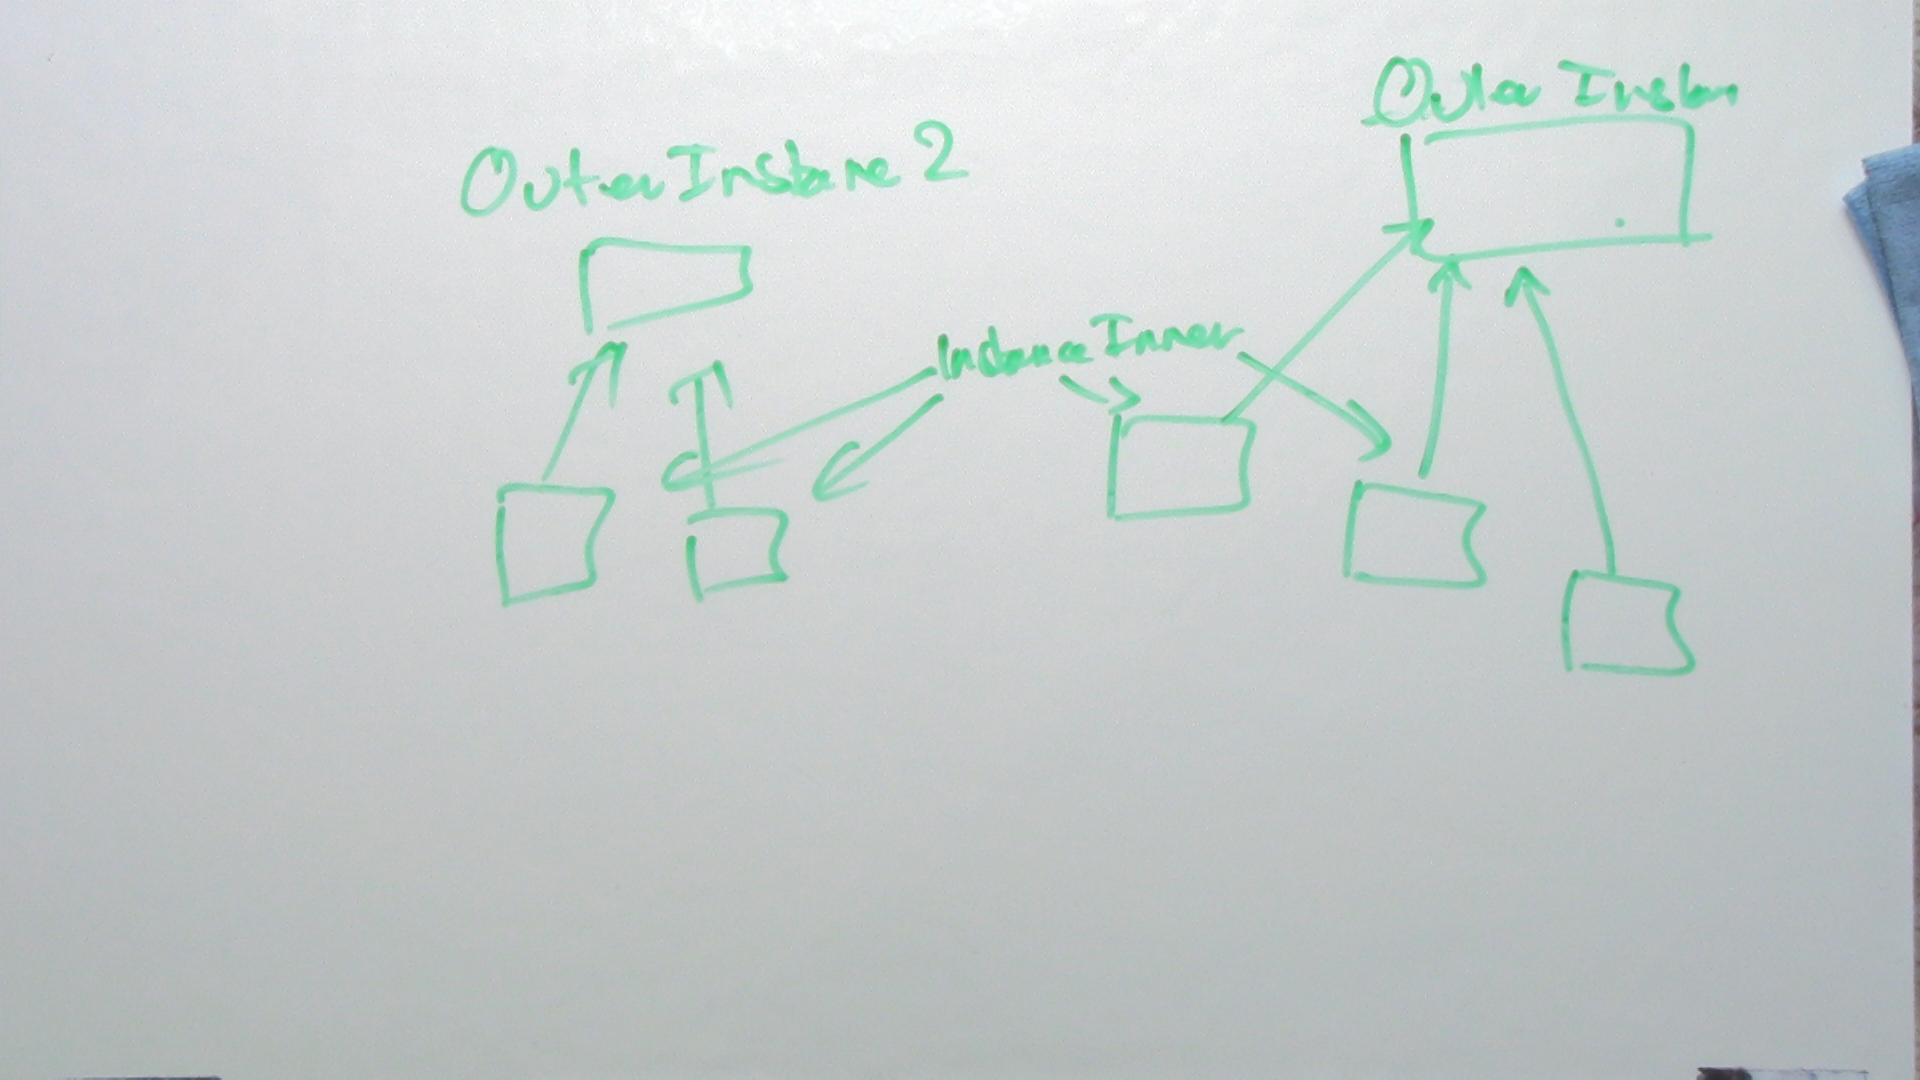 Outer Instan
Outer Instane 2
Instance Inner